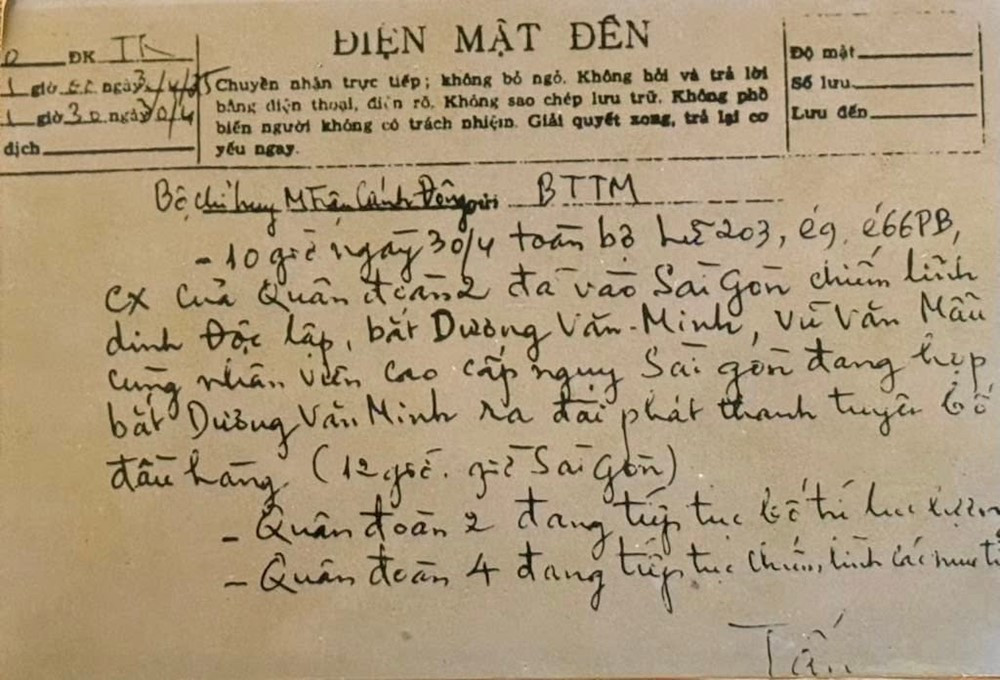 ĐIỆN MẬT ĐẾN
ĐK
1 giờ ngày
1 giờ 30 ngày 30/4
dịch
Chuyền nhận trực tiếp; không bỏ ngỏ. Không hỏi và trả lời
bằng điện thoại, điện rõ. Không sao chép lưu trữ. Không phổ
biến người không có trách nhiệm. Giải quyết xong, trả lại cơ
yếu ngay.
Độ mật
Số lưu
Lưu đến
Bộ chỉ huy M Trận Cánh Đông gửi BTTM
- 10 giờ ngày 30/4 toàn bộ lữ 203, e9. e66PB,
CX của Quân đoàn 2 đã vào Sài Gòn chiếm lĩnh
dinh Độc lập, bắt Dương Văn Minh, Vũ Văn Mẫu
cùng nhân viên cao cấp nguỵ Sài gòn đang họp
bắt Dương Văn Minh ra đài phát thanh tuyên bố
đầu hàng (12 giờ. giờ Sài Gòn)
- Quân đoàn 2 đang tiếp tục bố trí lực lượng
- Quân đoàn 4 đang tiếp tục chiếm lĩnh các mục ti
Tấn